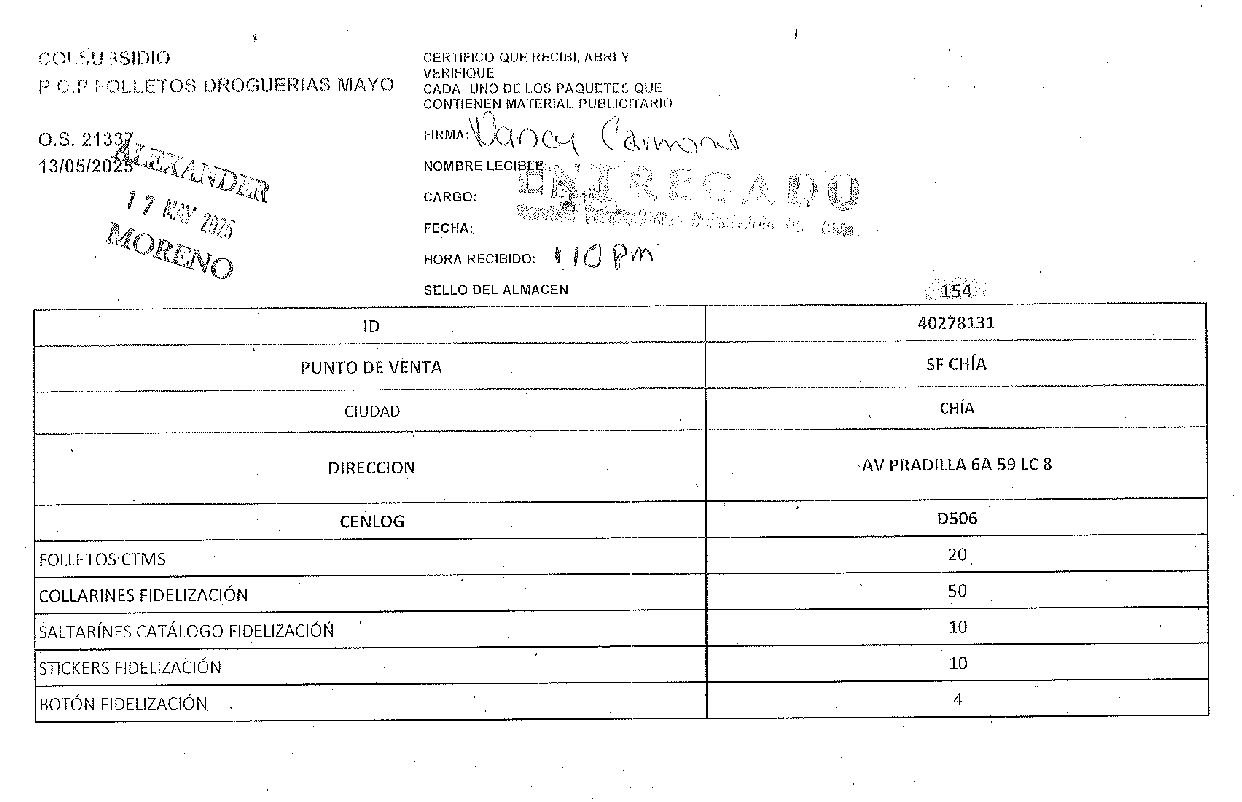 COLSUBSIDIO
P.O.P FOLLETOS DROGUERIAS MAYO
O.S. 21337
13/05/2025
ALEXANDER
17 MAY 2025
MORENO
CERTIFICO QUE RECIBI, ABRI Y
VERIFIQUE
CADA UNO DE LOS PAQUETES QUE
CONTIENEN MATERIAL PUBLICITARIO
FIRMA: Nancy Carmona
NOMBRE LECIBLE:
ENTREGADO
CARGO:
FECHA:
HORA RECIBIDO: 1 10 pm
SELLO DEL ALMACEN
154
ID 40278131
PUNTO DE VENTA SF CHÍA
CIUDAD CHÍA
DIRECCION AV PRADILLA 6A 59 LC 8
CENLOG D506
FOLLETOS CTMS 20
COLLARINES FIDELIZACIÓN 50
SALTARÍNES CATÁLOGO FIDELIZACIÓN 10
STICKERS FIDELIZACIÓN 10
BOTÓN FIDELIZACIÓN 4